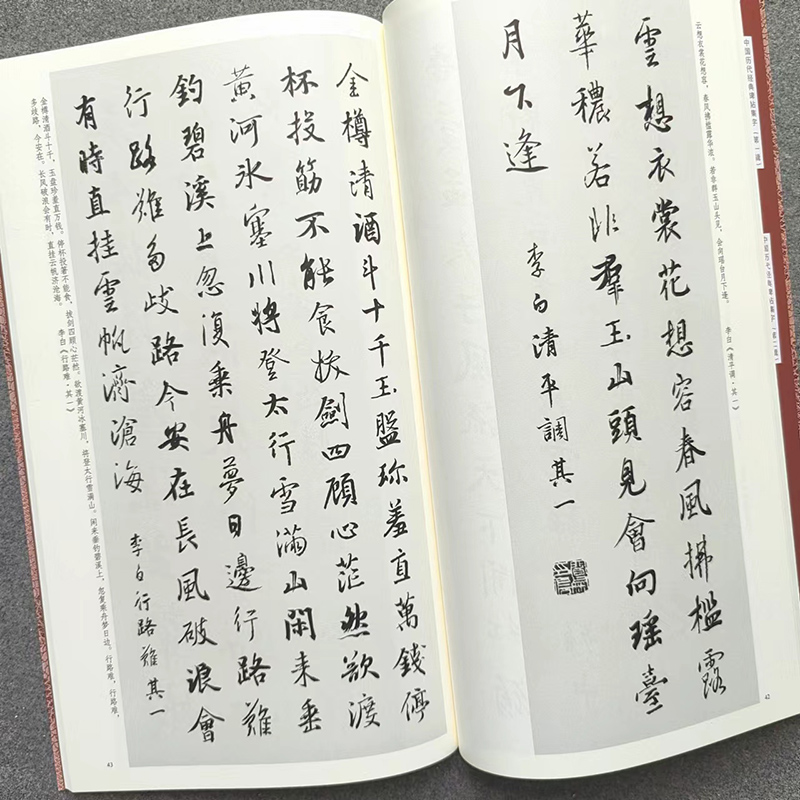 中国历代经典碑帖集字（第一辑）
中国历代经典碑帖集字（第二辑）
云想衣裳花想容，春风拂槛露华浓。若非群玉山头见，会向瑶台月下逢。 李白《清平调·其一》
雲想衣裳花想容春風拂檻露
華穠若非羣玉山頭見會向瑤臺
月下逢
李白清平調其一
42
金樽清酒斗十千玉盤珎羞直萬錢停
杯投筯不能食拔劍四顧心茫然欲渡
黃河氷塞川將登太行雪滿山閑来垂
釣碧溪上忽復乘舟夢日邊行路難
行路難多歧路今安在長風破浪會
有時直挂雲帆濟滄海
李白行路難其一
金樽清酒斗十千，玉盘珍羞直万钱。停杯投箸不能食，拔剑四顾心茫然。欲渡黄河冰塞川，将登太行雪满山。闲来垂钓碧溪上，忽复乘舟梦日边。行路难，行路难，
多歧路，今安在。长风破浪会有时，直挂云帆济沧海。 李白《行路难·其一》
43